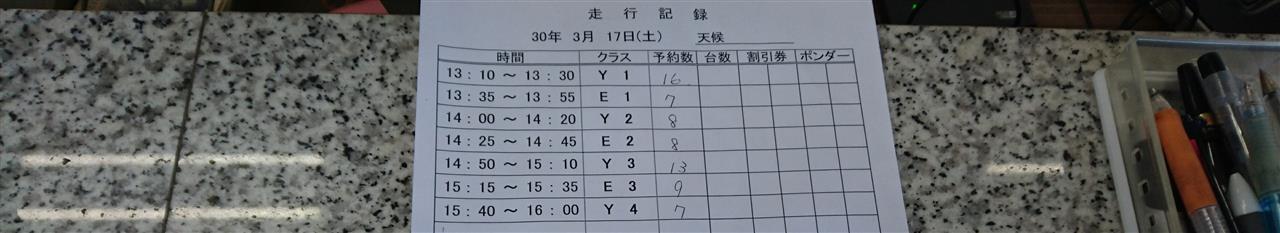 走行記録
30年 3月 17日(土) 天候
時間 クラス 予約数 台数 割引券 ポンダー
13:10～13:30 Y 1 16
13:35～13:55 E 1 7
14:00～14:20 Y 2 8
14:25～14:45 E 2 8
14:50～15:10 Y 3 13
15:15～15:35 E 3 9
15:40～16:00 Y 4 7